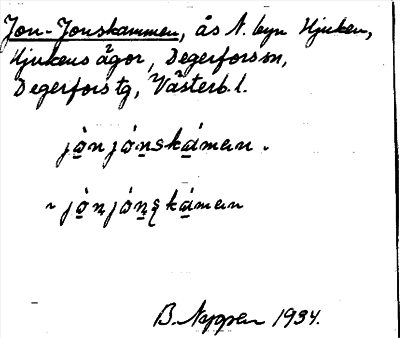 Jon-Jonskammen, ås N. byn Hjuken,
Hjukens ägor, Degerfors sn,
Degerfors tg, Västerb. l.
jȯ̠njȯn̠skȧ̠man.
~ jȯ̠njȯn̠skȧ̠man
B. Nyppen 1934.